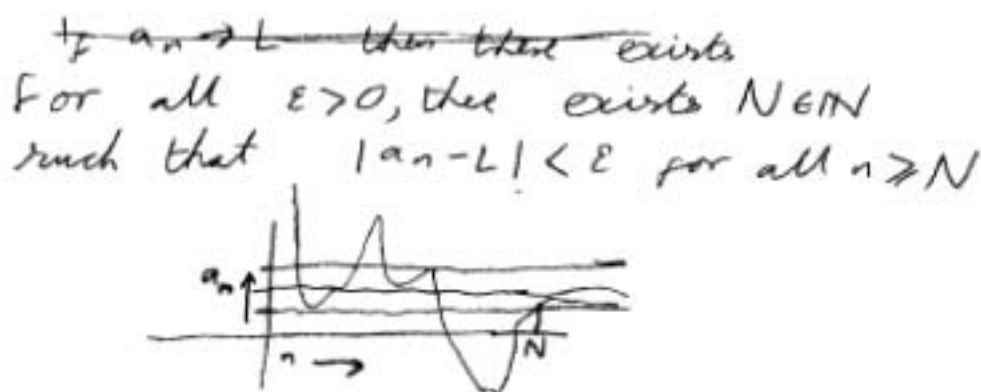 If aₙ → L then there exists
For all ε>0, thee exists N∈ℕ
such that |aₙ-L| < ε for all n ≥ N
aₙ ↑
N
n →